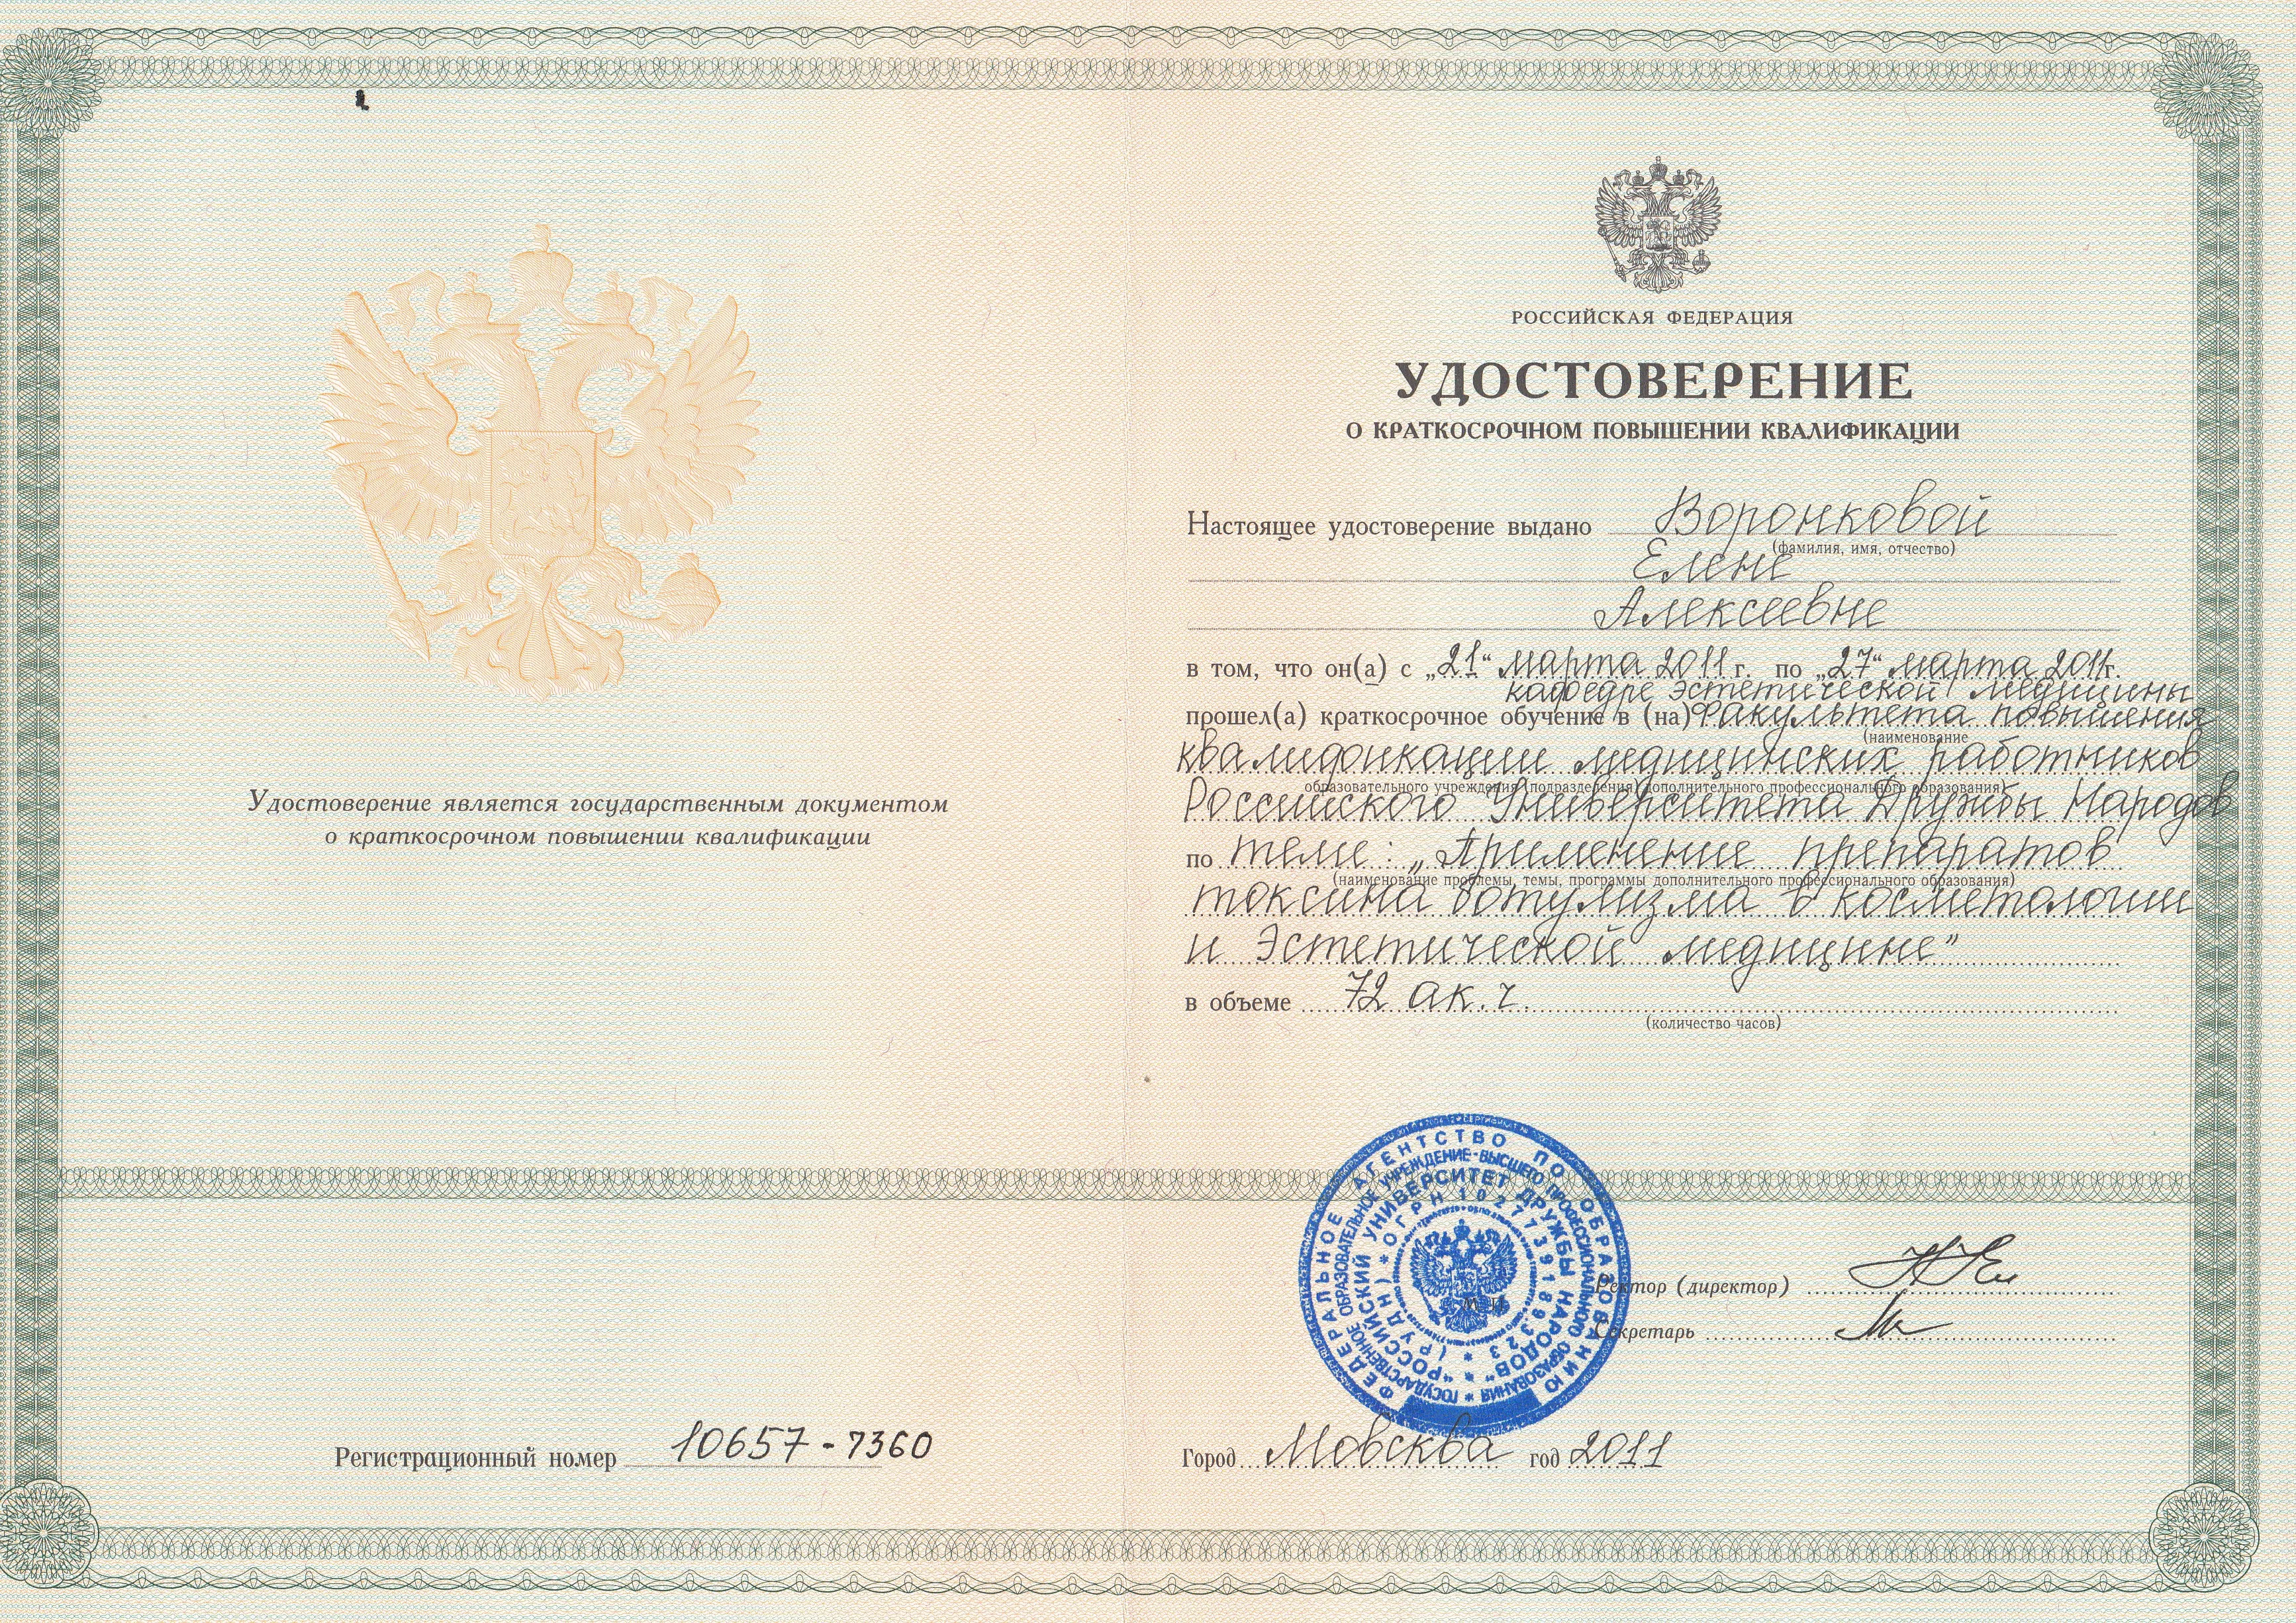 Удостоверение является государственным документом
о краткосрочном повышении квалификации
Регистрационный номер 10657-7360
РОССИЙСКАЯ ФЕДЕРАЦИЯ
УДОСТОВЕРЕНИЕ
О КРАТКОСРОЧНОМ ПОВЫШЕНИИ КВАЛИФИКАЦИИ
Настоящее удостоверение выдано Воронковой
(фамилия, имя, отчество)
Елене
Алексеевне
в том, что он(а) с „21“ марта 2011 г. по „27“ марта 2011г.
кафедре эстетической медицины
прошел(а) краткосрочное обучение в (на) Факультета повышения
(наименование
квалификации медицинских работников
образовательного учреждения (подразделения) дополнительного профессионального образования)
Российского Университета Дружбы Народов
по теме: „Применение препаратов
(наименование проблемы, темы, программы дополнительного профессионального образования)
токсина ботулизма в косметологии
и Эстетической медицине”
в объеме 72 ак. ч.
(количество часов)
ФЕДЕРАЛЬНОЕ АГЕНТСТВО ПО ОБРАЗОВАНИЮ
ГОСУДАРСТВЕННОЕ ОБРАЗОВАТЕЛЬНОЕ УЧРЕЖДЕНИЕ ВЫСШЕГО ПРОФЕССИОНАЛЬНОГО ОБРАЗОВАНИЯ
"РОССИЙСКИЙ УНИВЕРСИТЕТ ДРУЖБЫ НАРОДОВ"
(РУДН) * ОГРН 1027739189323 *
М.П.
Ректор (директор)
Секретарь
Город Мовсква год 2011